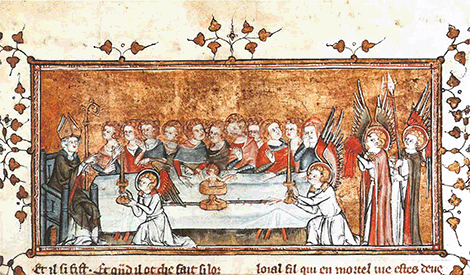 Et il si fist. Et qu̅d il ot che fait si lor
loial fil qui en mortel vie estes deue